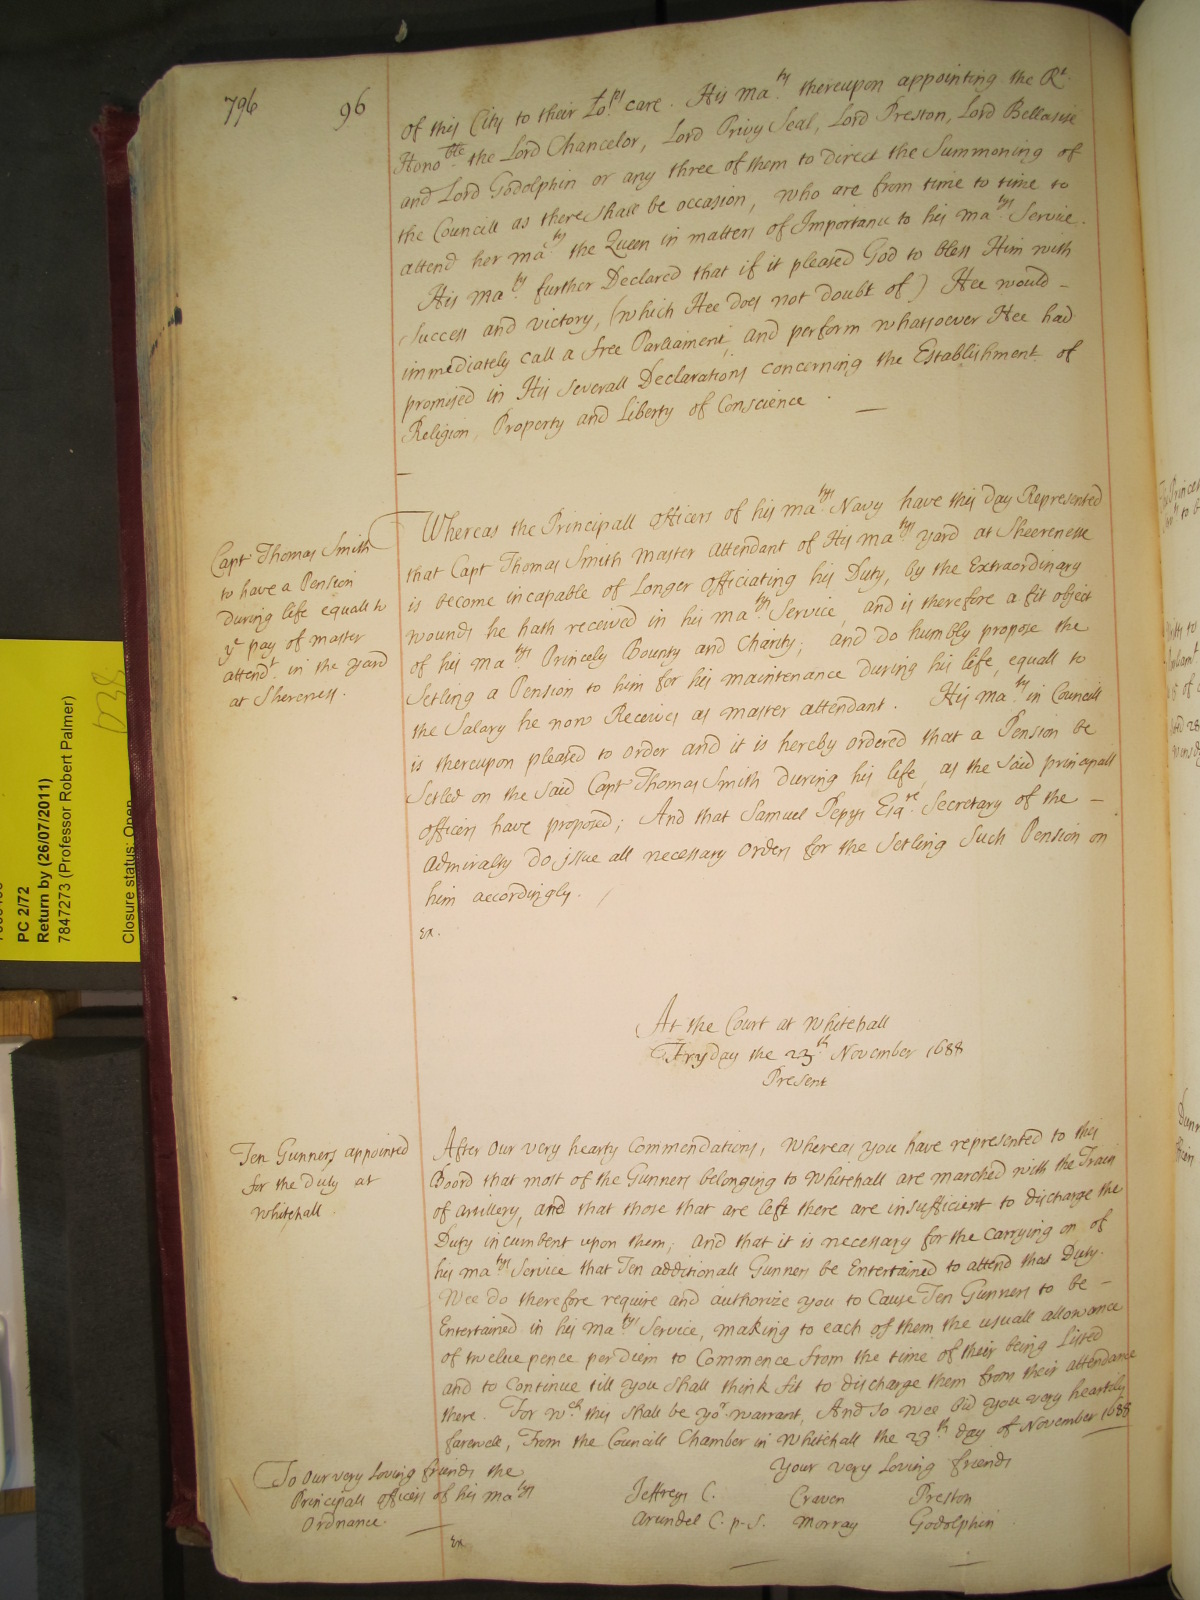 796 96
of this City to their Lo.ps care. His Ma.ty thereupon appointing the Rt.
Honoble the Lord Chancelor, Lord Privy Seal, Lord Preston, Lord Bellasise
and Lord Godolphin or any three of them to Direct the Summoning of
the Councill as there shall be occasion, who are from time to time to
attend her Ma.ty the Queen in matters of Importance to his Ma.tys Service.
His Ma.ty further Declared that if it pleased God to bless Him with
Success and victory, (which Hee does not doubt of) Hee would –
immediately call a free Parliament, and perform whatsoever Hee had
promised in His Severall Declarations concerning the Establishment of
Religion, Property and Liberty of Conscience.
Capt Thomas Smith
to have a Pension
during life equall to
ye pay of master
attendt. in the yard
at Sherness.
Whereas the Principall officers of his Ma.tys Navy have this day Represented
that Capt Thomas Smith Master Attendant of His Ma.tys yard at Sheerenesse
is become incapable of Longer officiating his Duty, by the Extraordinary
wounds he hath received in his Ma.tys Service, and is therefore a fit object
of his Ma.tys Princely Bounty and Charity; and do humbly propose the
Setling a Pension to him for his maintenance during his life, equall to
the Salary he now Receives as master attendant. His Ma.ty in Councill
is thereupon pleased to order and it is hereby ordered that a Pension be
Setled on the said Capt Thomas Smith during his life, as the said principall
officers have proposed; And that Samuel Pepys Esqre. Secretary of the –
Admiralty do issue all necessary orders for the Setling Such Pension on
him accordingly.
Ex.
At the Court at Whitehall
Fryday the 23th November 1688
Present
Ten Gunners appointed
for the duty at
Whitehall
After Our very hearty Commendations, Whereas you have represented to this
Board that most of the Gunners belonging to Whitehall are marched with the Train
of artillery, and that those that are left there are insufficient to discharge the
Duty incumbent upon them; and that it is necessary for the carrying on of
his Ma.tys Service that Ten additionall Gunners be Entertained to attend that Duty.
Wee do therefore require and authorize you to Cause Ten Gunners to be –
Entertained in his Ma.tys Service, making to each of them the usuall allowance
of twelve pence per diem to Commence from the time of their being Listed
and to Continue till you shall think fit to discharge them from their attendance
there. For wch. this shall be yor. warrant, And so wee bid you very heartily
farewell, From the Councill Chamber in Whitehall the 23th day of November 1688
Your very Loving friends
To Our very Loving friends the
Principall officers of his Ma.tys
Ordnance.
Jeffreys C. Craven Preston
Arundel C. p. S. Morray Godolphin
Ex.
PC 2/72
Return by (26/07/2011)
7847273 (Professor Robert Palmer)
Closure status: Open
D38